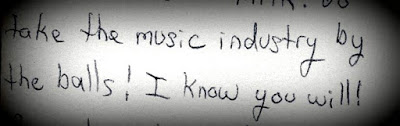 take the music industry by
the balls! I know you will!